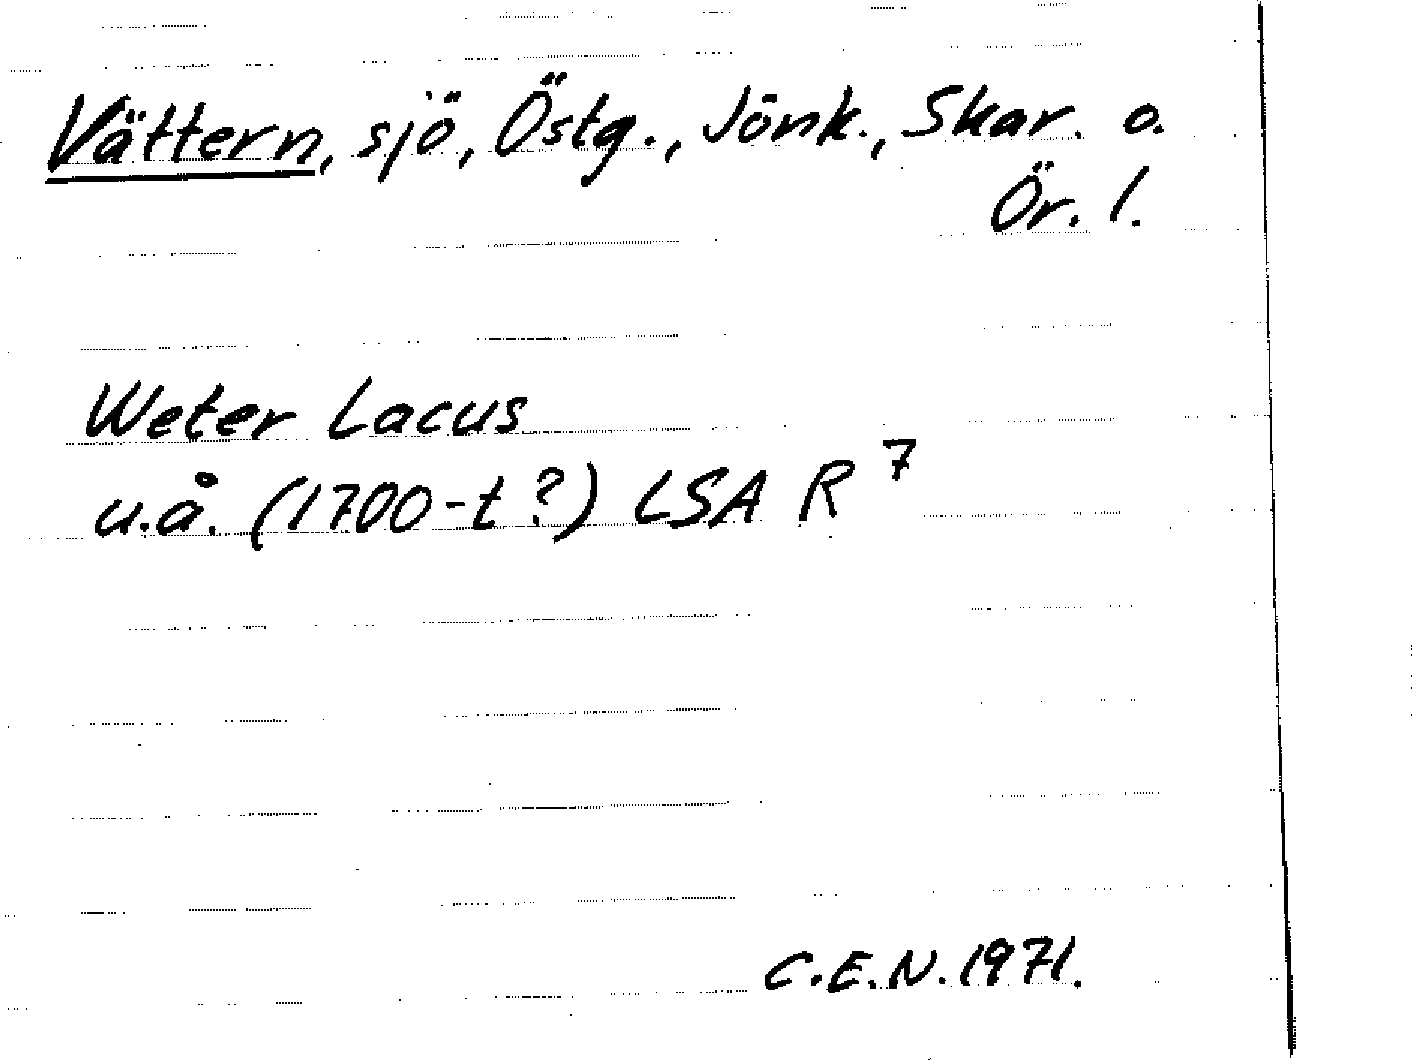 Vättern, sjö, Östg., Jönk., Skar. o.
Ör. l.
Weter Lacus
u.å. (1700-t?) LSA R 7
C.E.N. 1971.